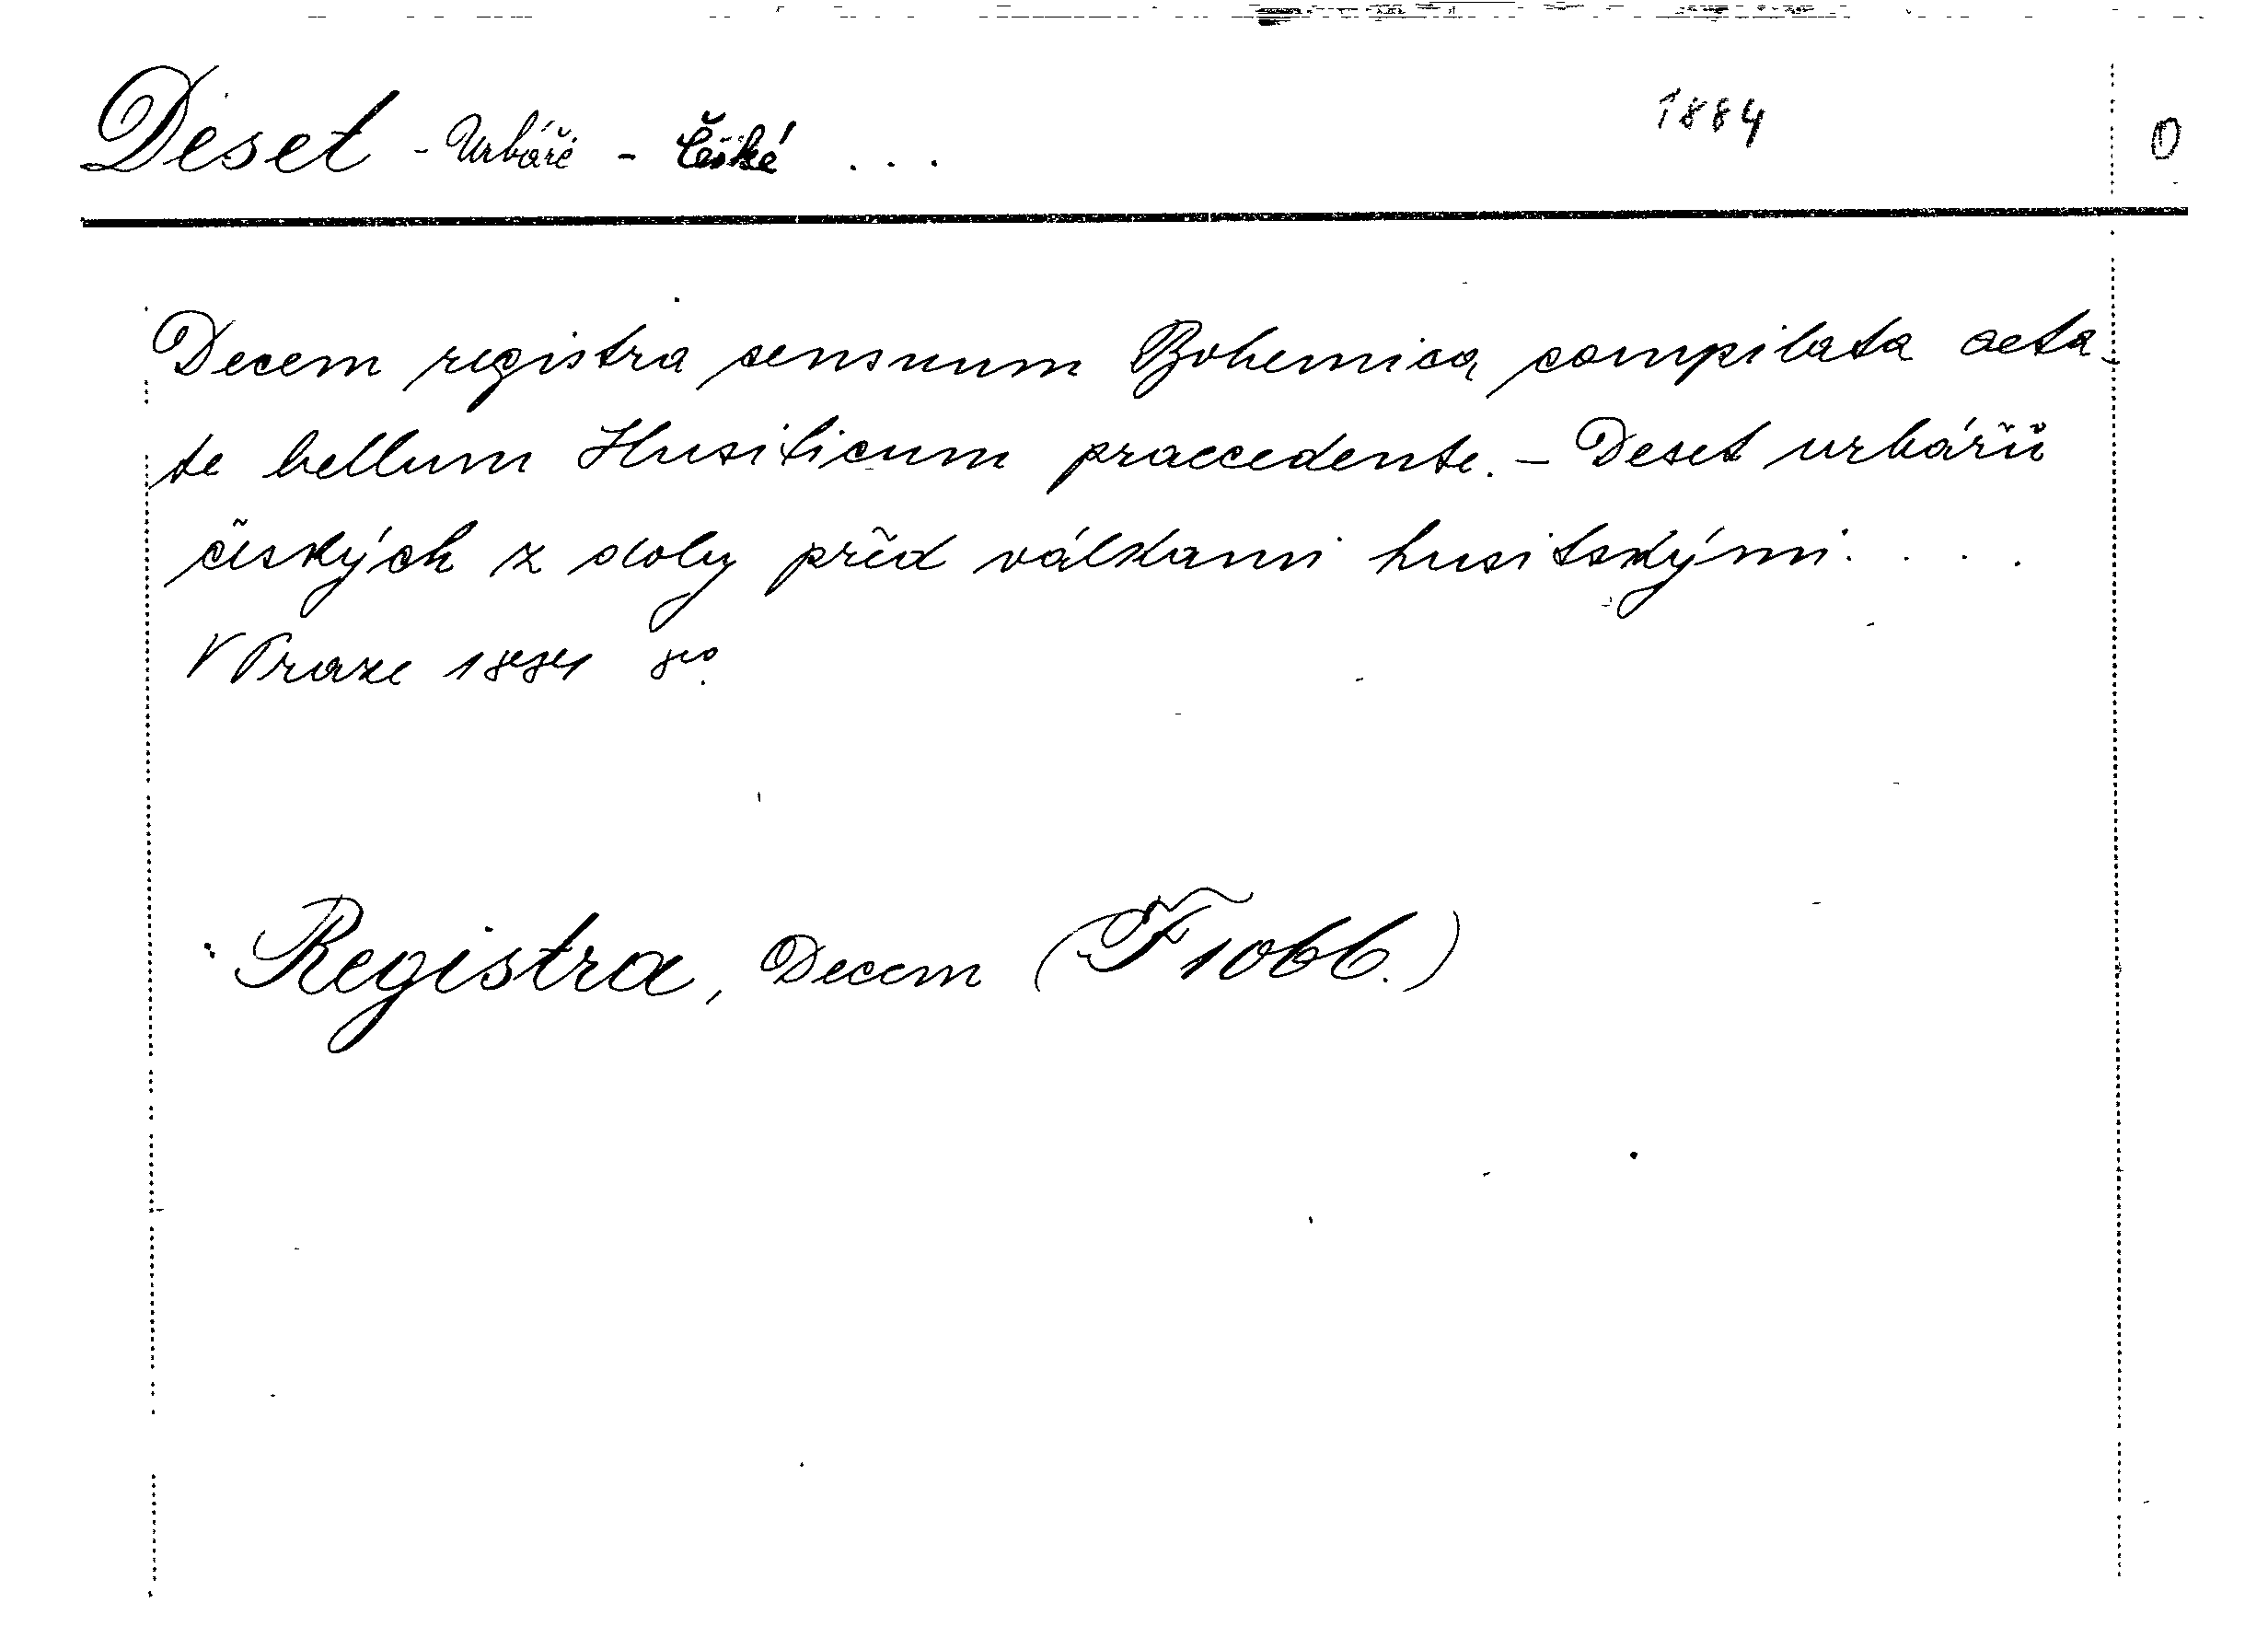 Deset - Urbáře - České ... 1884 0
Decem registra censuum Bohemica compilata aeta-
te bellum Husiticum praecedente. - Deset urbářů
českých z doby před válkami husitskými. . . .
V Praze 1881 8°.
Registra, Decem (F 1066.)